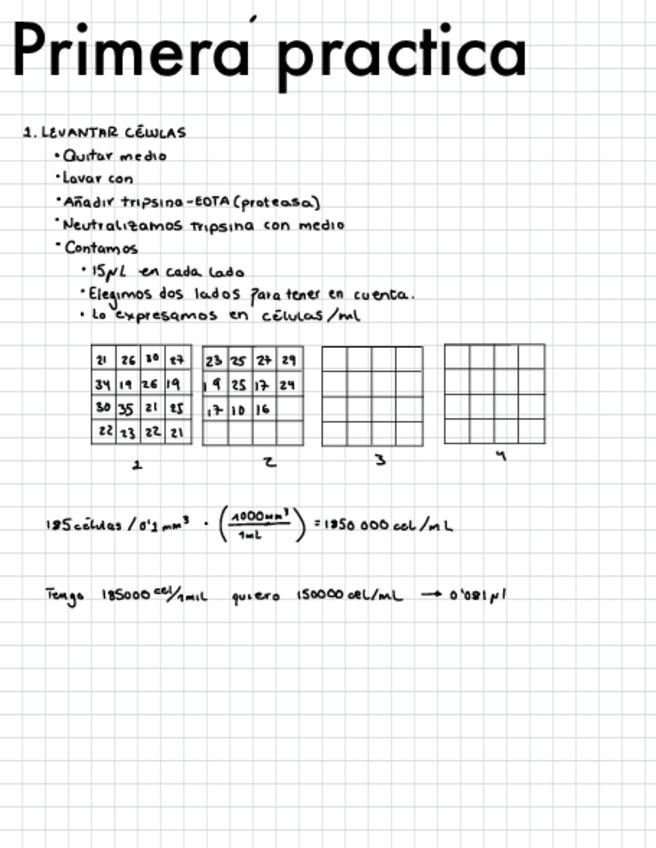 Primera´ practica
1. LEVANTAR CÉLULAS
• Quitar medio
• Lavar con
• Añadir tripsina-EDTA (proteasa)
• Neutralizamos tripsina con medio
• Contamos
• 15µL en cada lado
• Elegimos dos lados para tener en cuenta.
• Lo expresamos en células/ml
21 26 30 27 23 25 27 29
34 19 26 19 19 25 17 24
30 35 21 25 17 10 16
22 23 22 21
1 2 3 4
185 células / 0'1 mm³ · (1000mm³ / 1mL) = 1850 000 cel/mL
Tengo 185000 cel/1mil quiero 150000 cel/mL → 0'081 µl